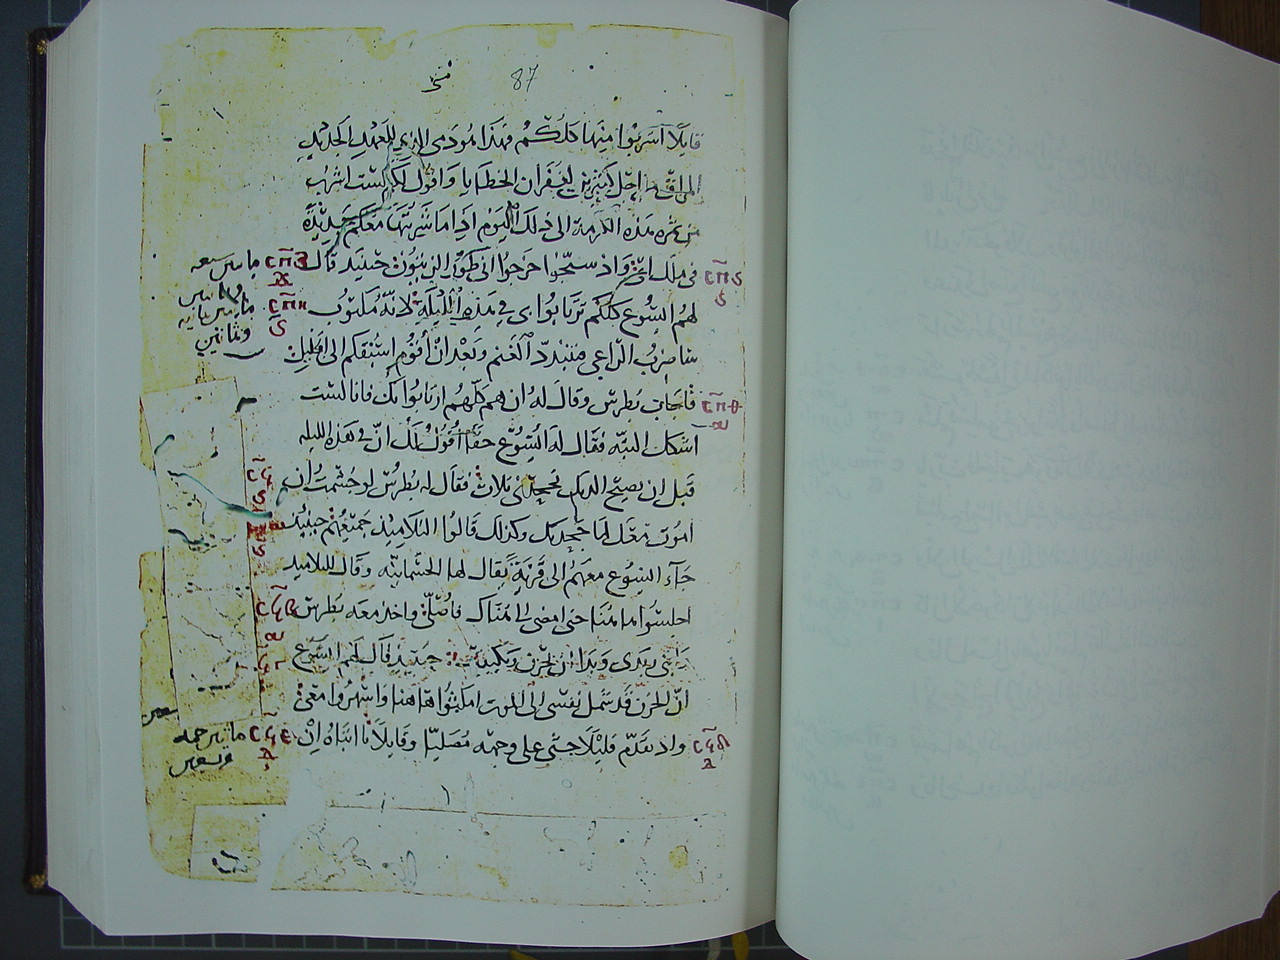 متى 87
قايلًا آشربوا منها كلكم فهذا هو دمى الذى للعهد الجديد
المراق من اجل كثيرين لغفران الخطايا واقول لكم لست اشرب
من ثمره هذه الكرمة الى ذلك اليوم اذا ما شربتها معكم جديدة
في ملك ابى واذ سبّحوا خرجوا الى طور الزيتون حينيد قال
لهم ايسوع كلكم ترتابوا بي في هذه الليلة لانه مكتوب
ساضرب الراعي فتتبدد الغنم وبعد ان أقوم اسبقكم الى الجليل
فاجاب بطرس وقال له ان هم كلهم ارتابوا بك فانا لست
اشك البته فقال له ايسوع حقا أقول لك انّ في هذه الليله
قبل ان يصيح الديك تجحدنى ثلاث فقال له بطرس لو جشمت ان
اموت معك لما جحدتك وكذلك قالوا التلاميذ جميعهم حينيد
جآء ايسوع معهم الى قرية يقال لها الجشمانيه وقال للتلاميد
اجلسوا ها هنا حتى امضى الى هناك فاصلّي واخذ معه بطرس
وابنى زبدى وبدا ان يحزن ويكيب حينيد قال لهم ايسوع
انّ الحزن قد شمل نفسى الى الموت امكثوا هاهنا واسهروا معى
واذ تقدّم قليلًا جثى على وجهه مصليّا وقايلًا يا ابتاه ان
مايتين وسبعه
وثمانين
مايتين ثمانيه
وثمانين
مايتين خمسه
وتسعين